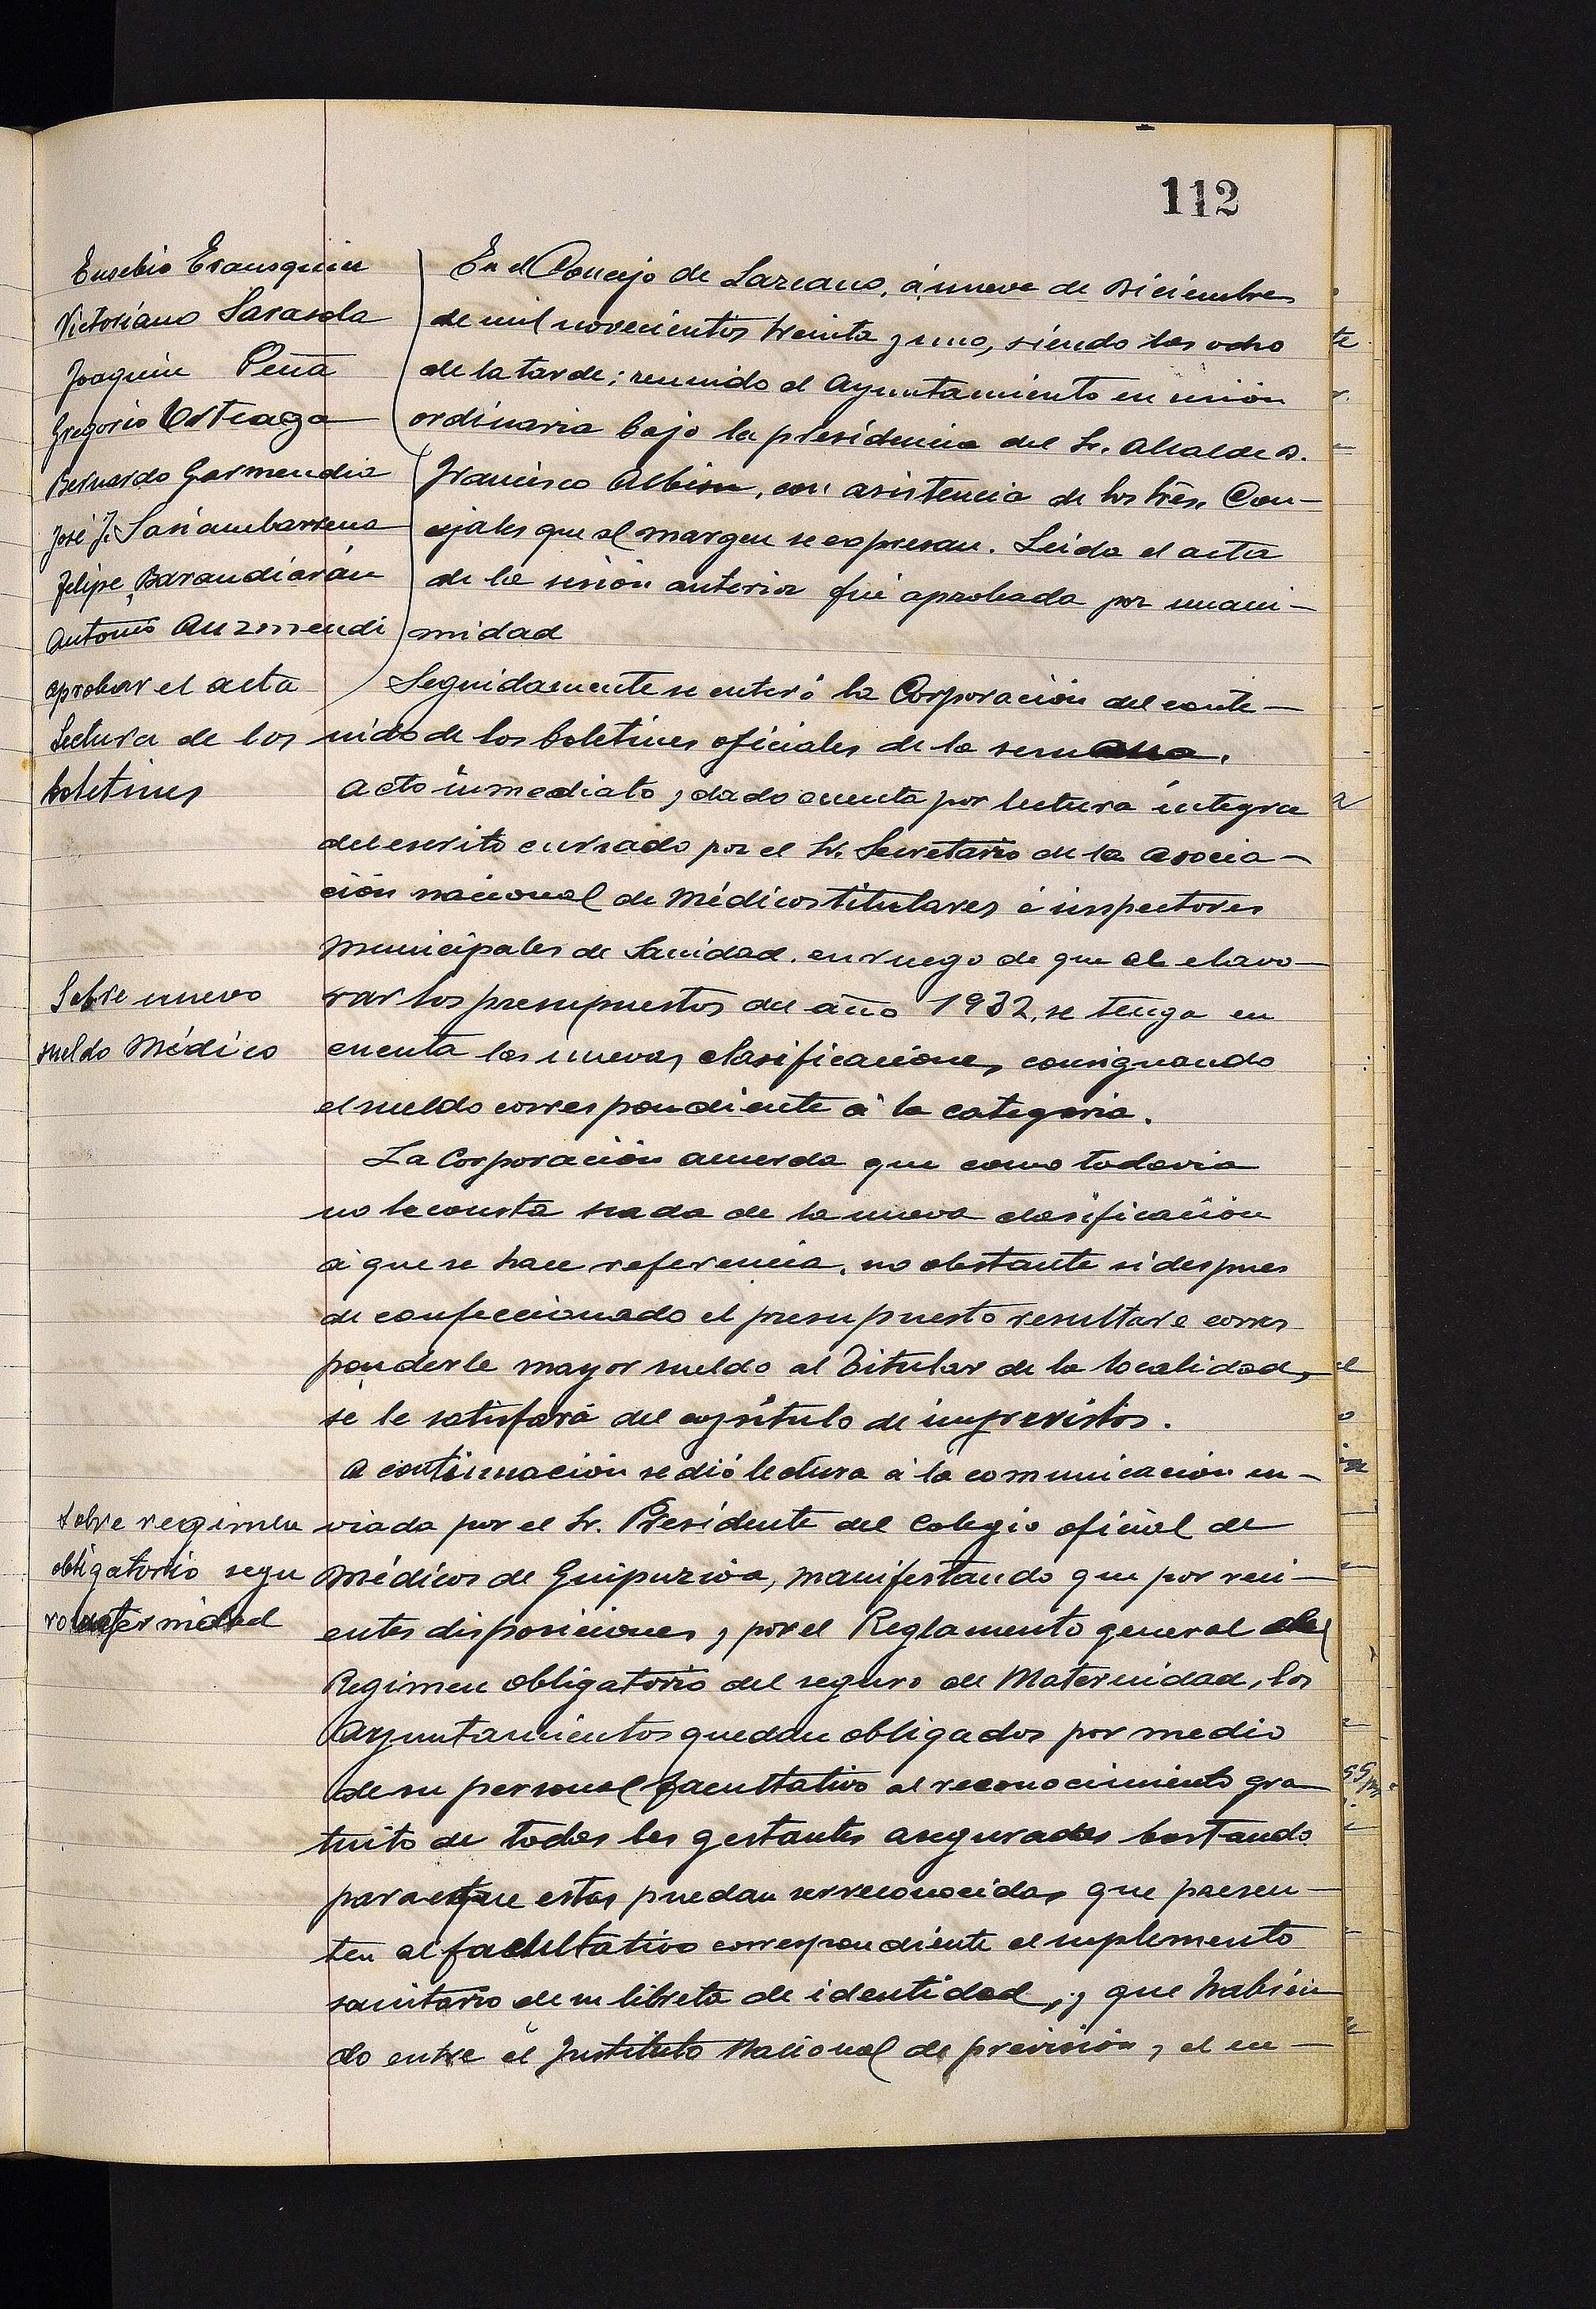 112
Eusebio Erausquin
Victoriano Sarasola
Joaquin Peña
Gregorio Urteaga
Bernardo Garmendia
José J. Sasiambarrena
Felipe Barandiarán
Antonio Auzmendi
aprobar el acta
Lectura de los
boletines
En el Concejo de Lazcano, á nueve de Diciembre
de mil novecientos treinta y uno, siendo las ocho
de la tarde; reunido el Ayuntamiento en sesión
ordinaria bajo la presidencia del Sr. Alcalde D.
Francisco Albisu, con asistencia de los Sres. Con-
cejales que al margen se expresan. Leida el acta
de la sesión anterior fué aprobada por unani-
midad
Seguidamente se enteró la Corporación del conte-
nido de los boletines oficiales de la semana.
Acto inmediato, dado cuenta por lectura integra
del escrito cursado por el Sr. Secretario de la asocia-
ción nacional de Médicos titulares é inspectores
Municipales de Sanidad. en ruego de que al elavo-
Sobre nuevo
sueldo Médico
rar los presupuestos del año 1932, se tenga en
cuenta las nuevas clasificaciones, consignando
el sueldo correspondiente á la categoria.
La Corporación acuerda que como todavia
no le consta nada de la nueva clasificación
á que se hace referencia, no obstante si despues
de confeccionado el presupuesto resultare corres
ponderle mayor sueldo al Titular de la localidad,
se le satisfará del capitulo de imprevistos.
A continuación se dió lectura á la comunicación en-
Sobre regimen
obligatorio segu
ro maternidad
viada por el Sr. Presidente del Colegio oficial de
Médicos de Guipuzcoa, manifestando que por reci-
entes disposiciones, y por el Reglamento general del
Regimen obligatorio del seguro de Maternidad, los
Ayuntamientos quedan obligados por medio
de su personal facultativo al reconocimiento gra
tuito de todas las gestantes aseguradas bastando
para que estas puedan ser reconocidas que presen-
ten al facultativo correspondiente el suplemento
sanitario de su libreta de identidad, y que habien
do entre el Instituto Nacional de previsión, el en-